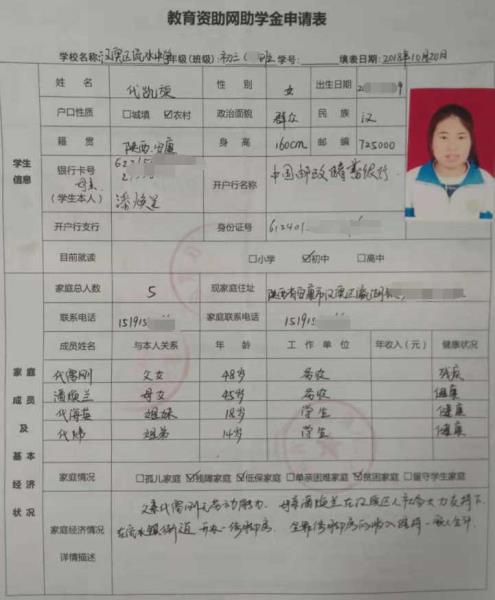 教育资助网助学金申请表
学校名称:汉滨区流水中学 年级(班级) 初三( )班 学号: 填表日期:2018年10月20日
姓 名 代凯旋 性 别 女 出生日期 2 9
户口性质 □城填 ☑农村 政治面貌 群众 民 族 汉
籍 贯 陕西.安康 身 高 160cm 邮 编 725000
学生信息
银行卡号 (学生本人) 6221 潘焕兰 开户行名称 中国邮政储蓄银行.
开户行支行 身份证号 612401
目前就读 □小学 ☑初中 □高中
家庭总人数 5 现家庭住址 陕西省安康市汉滨区
联系电话 151915 家庭联系电话 151915
成员姓名 与本人关系 年 龄 工 作 单 位 年收入(元) 健康状况
代儒刚 父女 48岁 务农 残疾
潘焕兰 母女 45岁 务农 健康
代海英 姐妹 18岁 学生 健康
代 姐弟 14岁 学生 健康
家庭成员及基本经济状况
家庭情况 □孤儿家庭 ☑残障家庭 ☑低保家庭 □单亲困难家庭 ☑贫困家庭 □留守学生家庭
家庭经济情况详情描述
父亲代儒刚无劳动能力. 母亲潘焕兰在汉滨区人社局大力支持下
在流水镇街道开办一修脚房. 全靠修脚房的收入维持一家人生计.